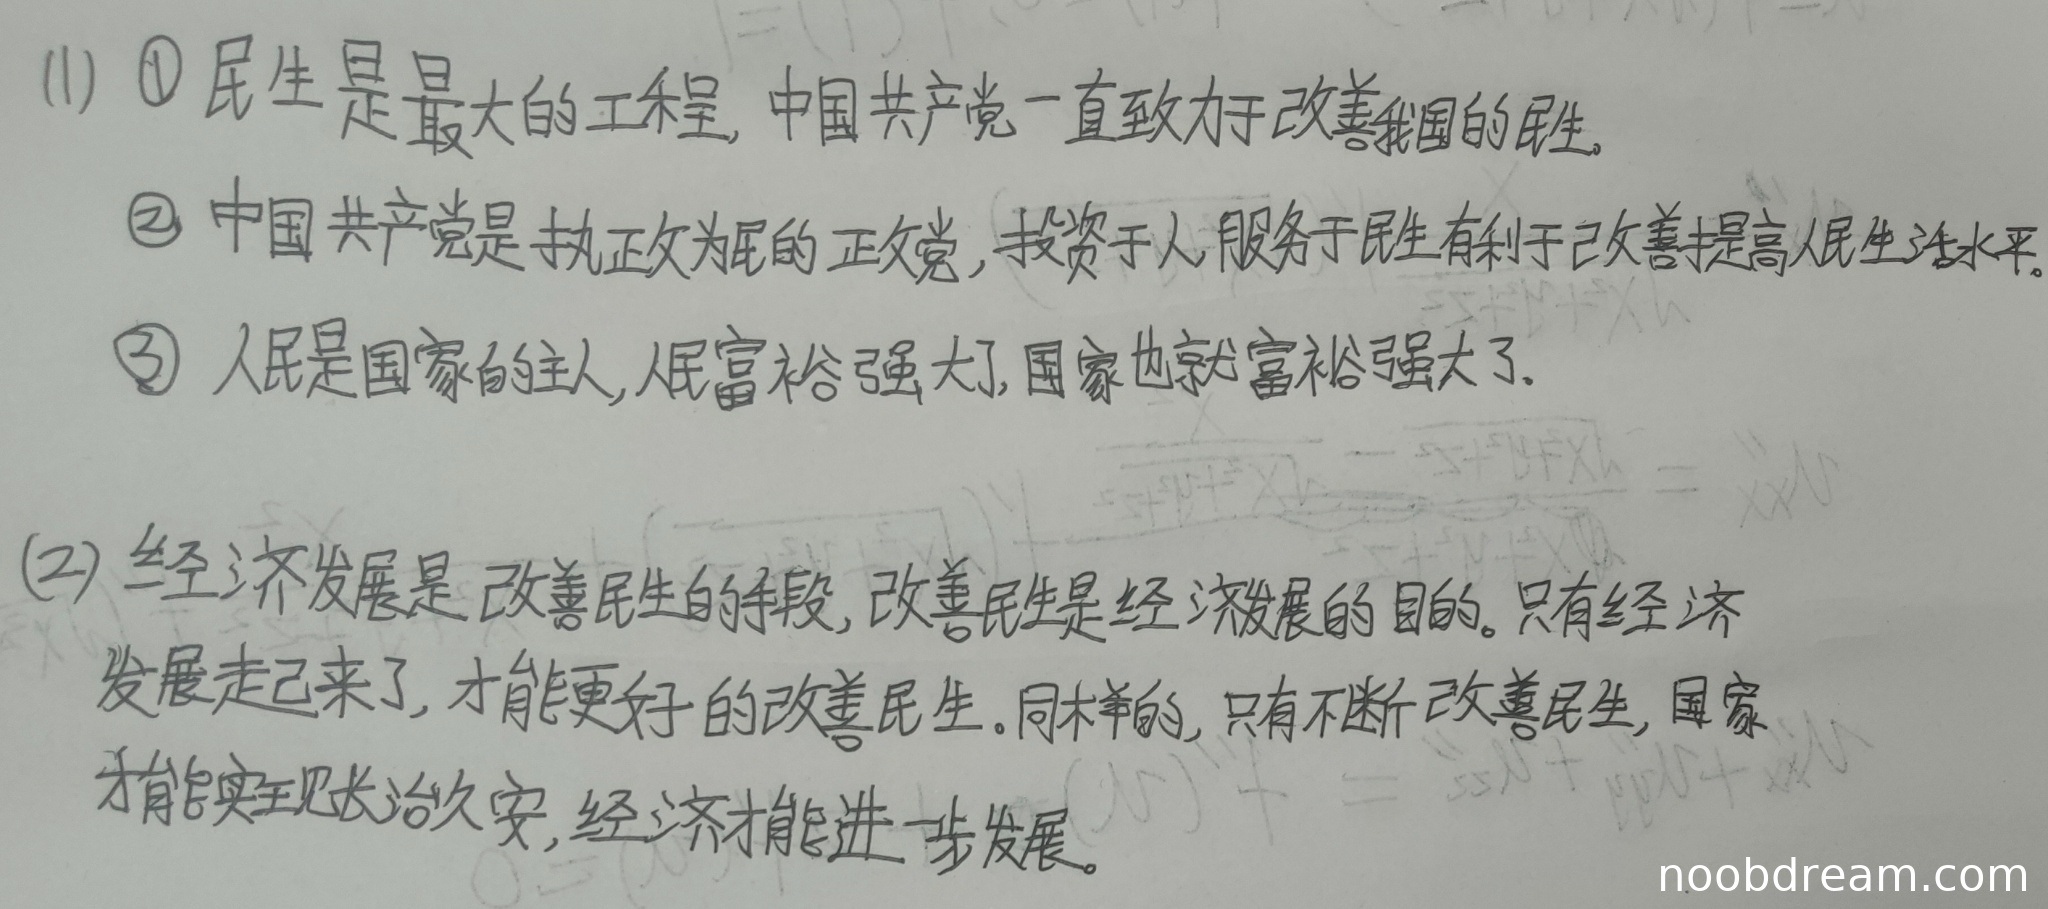 (1) ① 民生是最大的工程,中国共产党一直致力于改善我国的民生。
② 中国共产党是执政为民的政党,投资于人,服务于民生有利于改善提高人民生活水平。
③ 人民是国家的主人,人民富裕强大了,国家也就富裕强大了.
(2) 经济发展是改善民生的手段,改善民生是经济发展的目的。只有经济
发展走己来了,才能更好的改善民生。同样的,只有不断改善民生,国家
才能实现长治久安,经济才能进一步发展。
noobdream.com